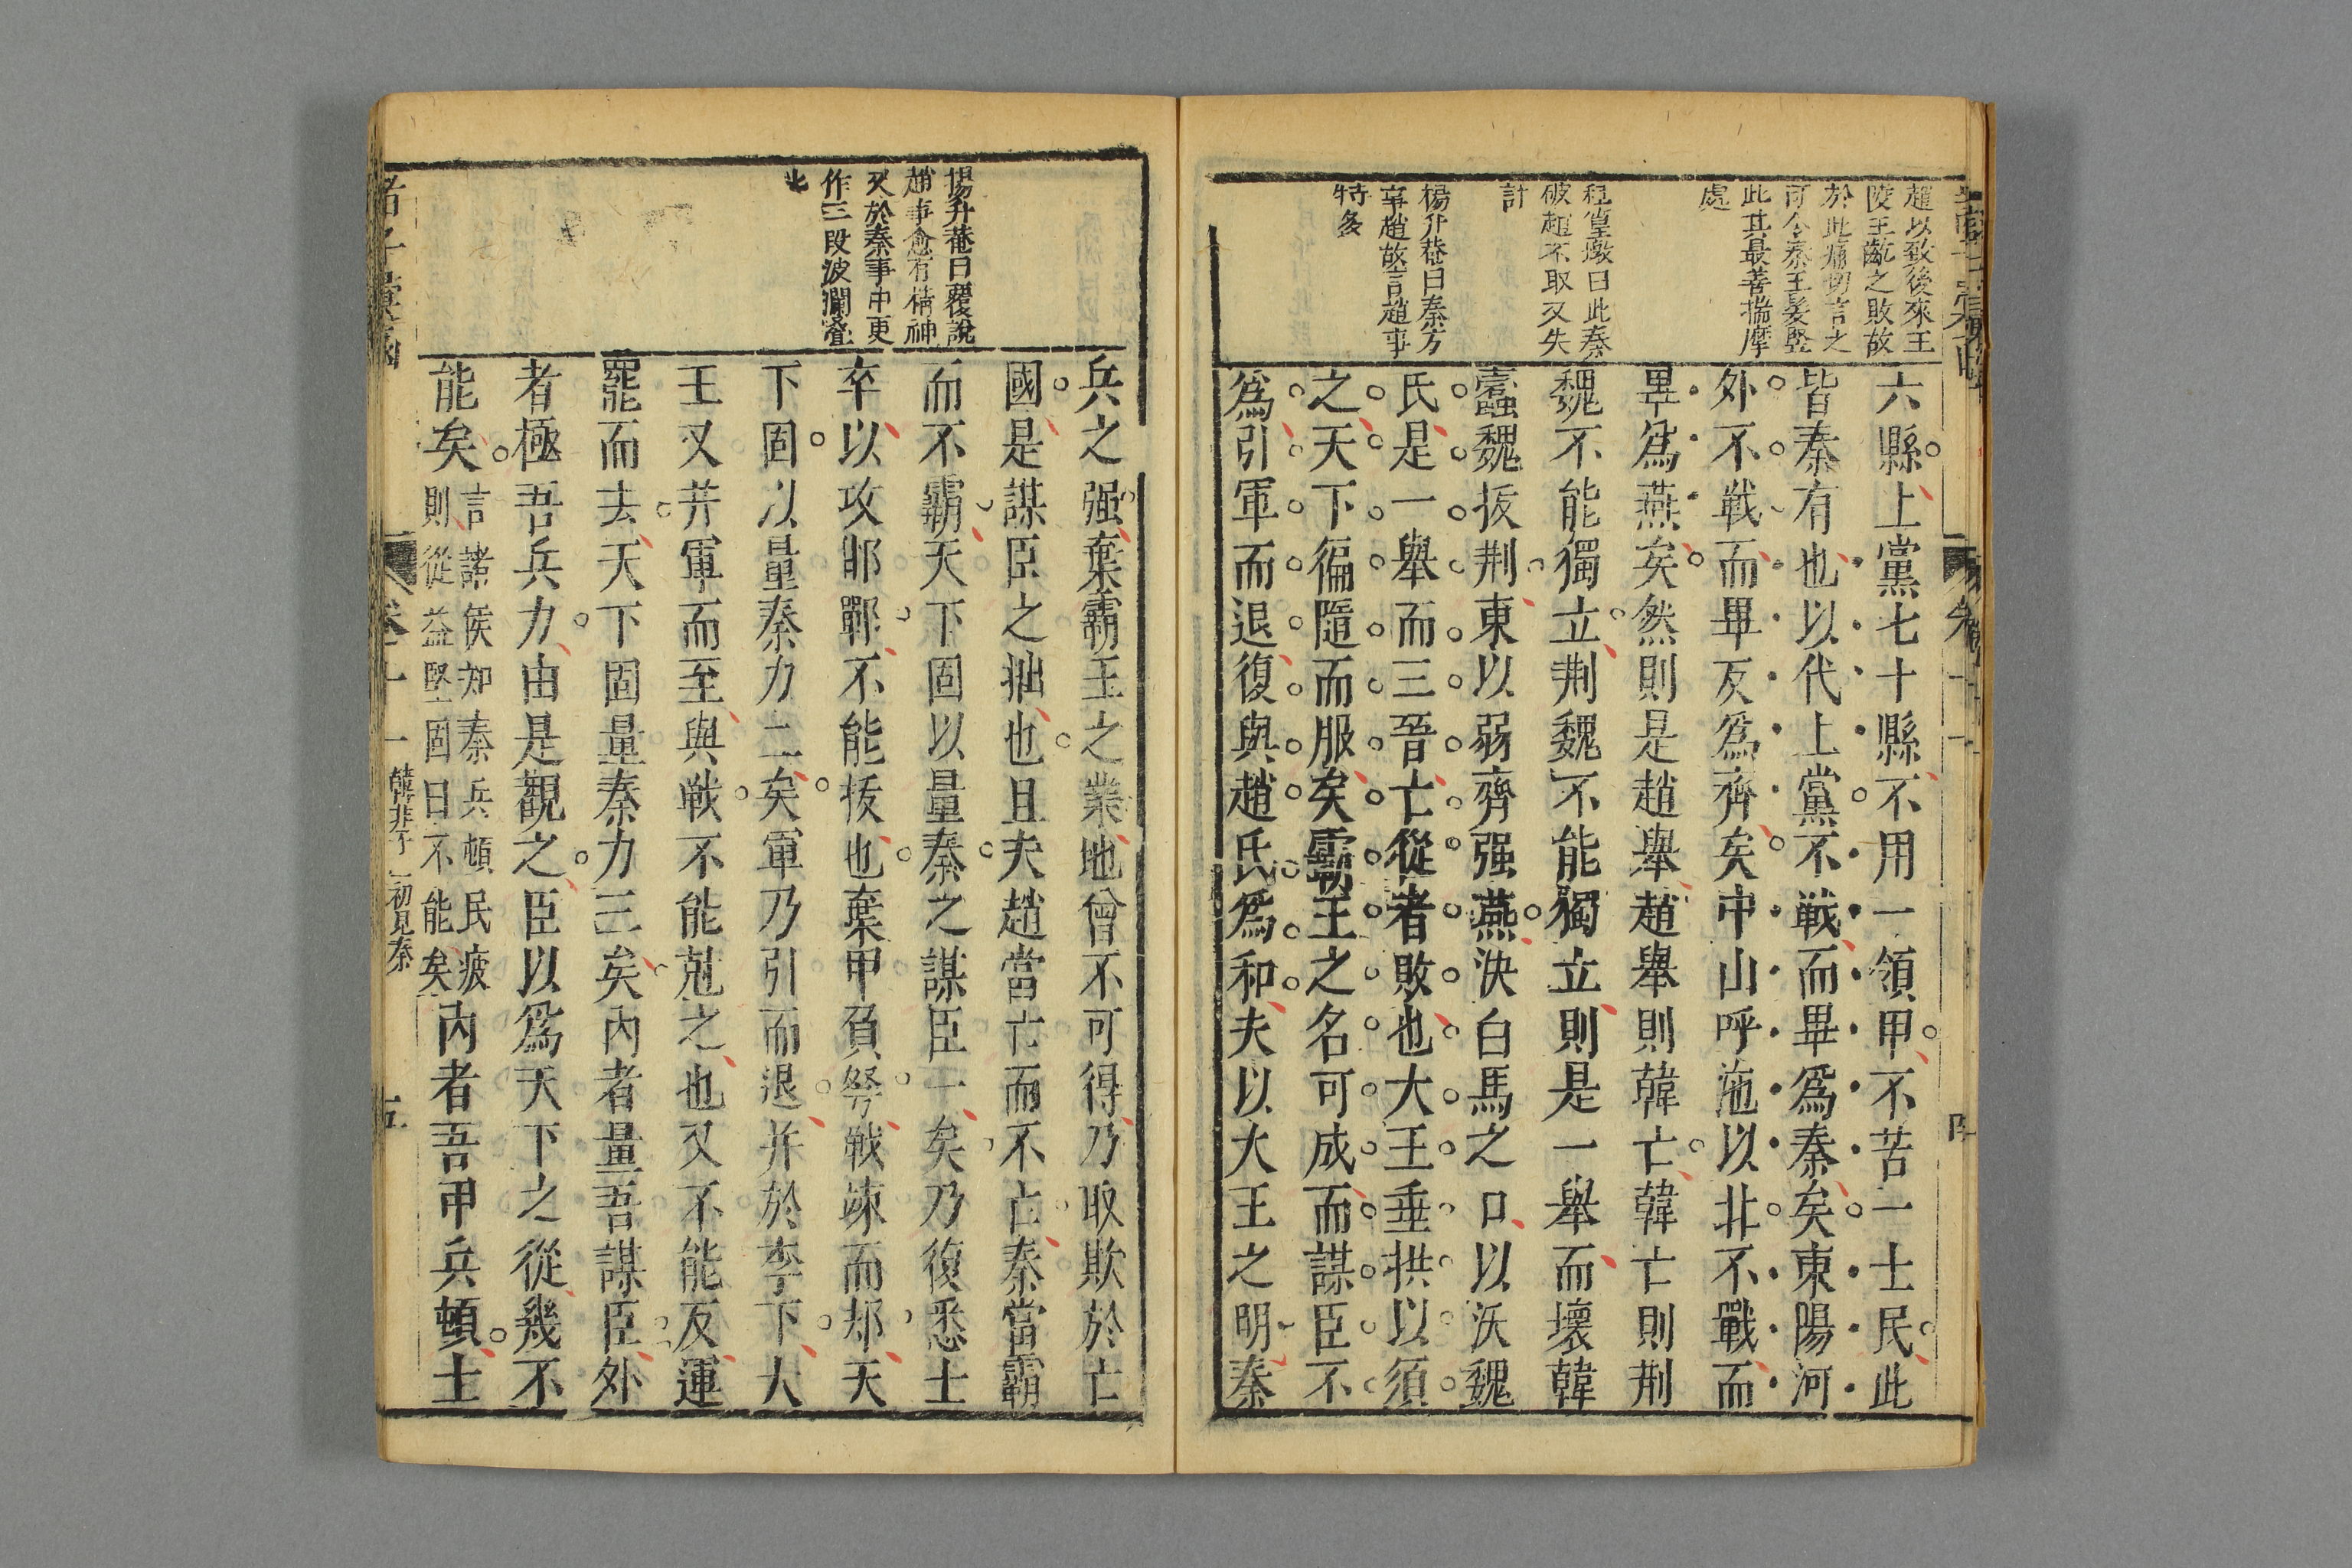 趙以致後來王
陵王齕之敗故
於此痛切言之
可令秦王髮竪
此其最善揣摩
處
程篁墩曰此秦
破趙不取又失
計
楊升菴曰秦方
事趙故言趙事
特多
六縣上黨七十縣不用一領甲不苦一士民此
皆秦有也以代上黨不戦而畢爲秦矣東陽河
外不戦而畢反爲齊矣中山呼沲以北不戰而
畢爲燕矣然則是趙舉趙舉則韓亡韓亡則荆
魏不能獨立荆魏不能獨立則是一舉而壞韓
蠹魏拔荆東以弱齊强燕決白馬之口以沃魏
氏是一舉而三晉亡從者敗也大王垂拱以須
之天下徧隨而服矣霸王之名可成而謀臣不
爲引軍而退復與趙氏爲和夫以大王之明秦
楊升菴曰覆說
趙事愈有精神
又於秦事中更
作三段波瀾叠
出
兵之强棄霸王之業地曾不可得乃取欺於亡
國是謀臣之拙也且夫趙當亡而不亡秦當霸
而不霸天下固以量秦之謀臣一矣乃復悉士
卒以攻邯鄲不能拔也棄甲負弩戦竦而却天
下固以量秦力二矣軍乃引而退并於李下大
王又并軍而至與戦不能尅之也又不能反運
罷而去天下固量秦力三矣内者量吾謀臣外
者極吾兵力由是觀之臣以爲天下之從幾不
能矣言諸侯知秦兵頓民疲
則從益堅固曰不能矣内者吾甲兵頓士
卷十一 韓非子 初見秦
五